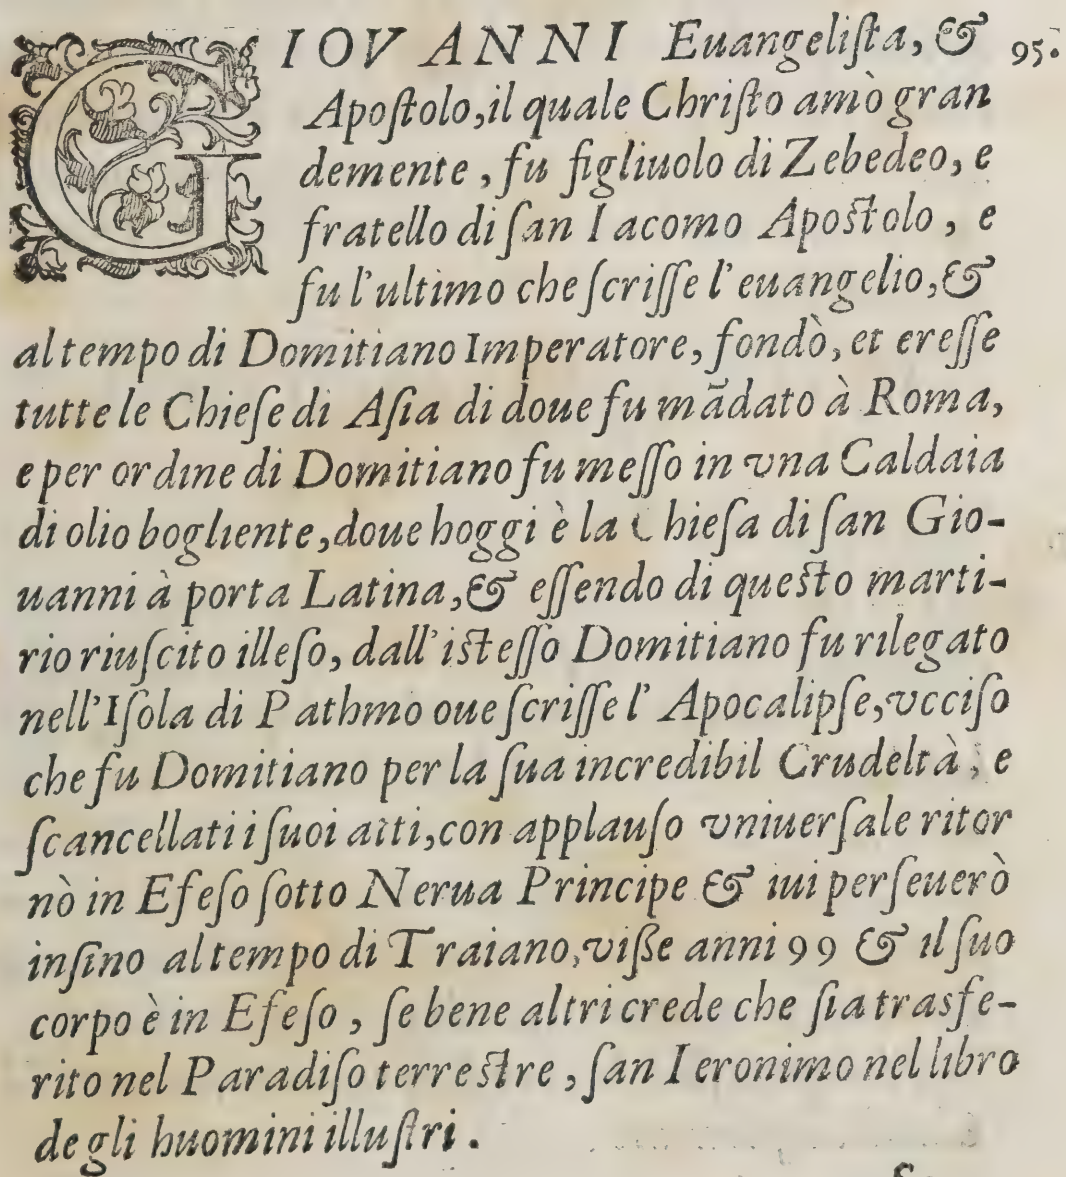 GIOVANNI Euangeliſta, & 95.
Apoſtolo, il quale Chriſto amò gran
demente, fu figliuolo di Zebedeo, e
fratello di ſan Iacomo Apoſtolo, e
fu l'ultimo che ſcriſſe l'euangelio, &
al tempo di Domitiano Imperatore, fondò, et ereſſe
tutte le Chieſe di Aſia di doue fu mãdato à Roma,
e per ordine di Domitiano fu meſſo in vna Caldaia
di olio bogliente, doue hoggi è la Chieſa di ſan Gio-
uanni à porta Latina, & eſſendo di queſto marti-
rio riuſcito illeſo, dall'iſteſſo Domitiano fu rilegato
nell'Iſola di Pathmo oue ſcriſſe l'Apocalipſe, vcciſo
che fu Domitiano per la ſua incredibil Crudeltà, e
ſcancellati i ſuoi atti, con applauſo vniuerſale ritor
nò in Efeſo ſotto Nerua Principe & iui perſeuerò
inſino al tempo di Traiano, viſse anni 99 & il ſuo
corpo è in Efeſo, ſe bene altri crede che ſia trasfe-
rito nel Paradiſo terreſtre, ſan Ieronimo nel libro
de gli huomini illuſtri.